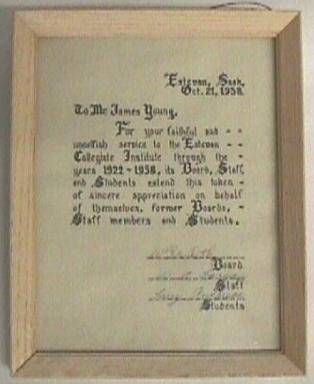 Estevan, Sask.
Oct. 21, 1938.
To Mr. James Young,
For your faithful and - -
unselfish service to the Estevan - -
Collegiate Institute through the -
years 1922 - 1938, its Board, Staff,
and Students extend this token -
of sincere appreciation on behalf
of themselves, former Boards, -
Staff members and Students.
Board
Staff
Students